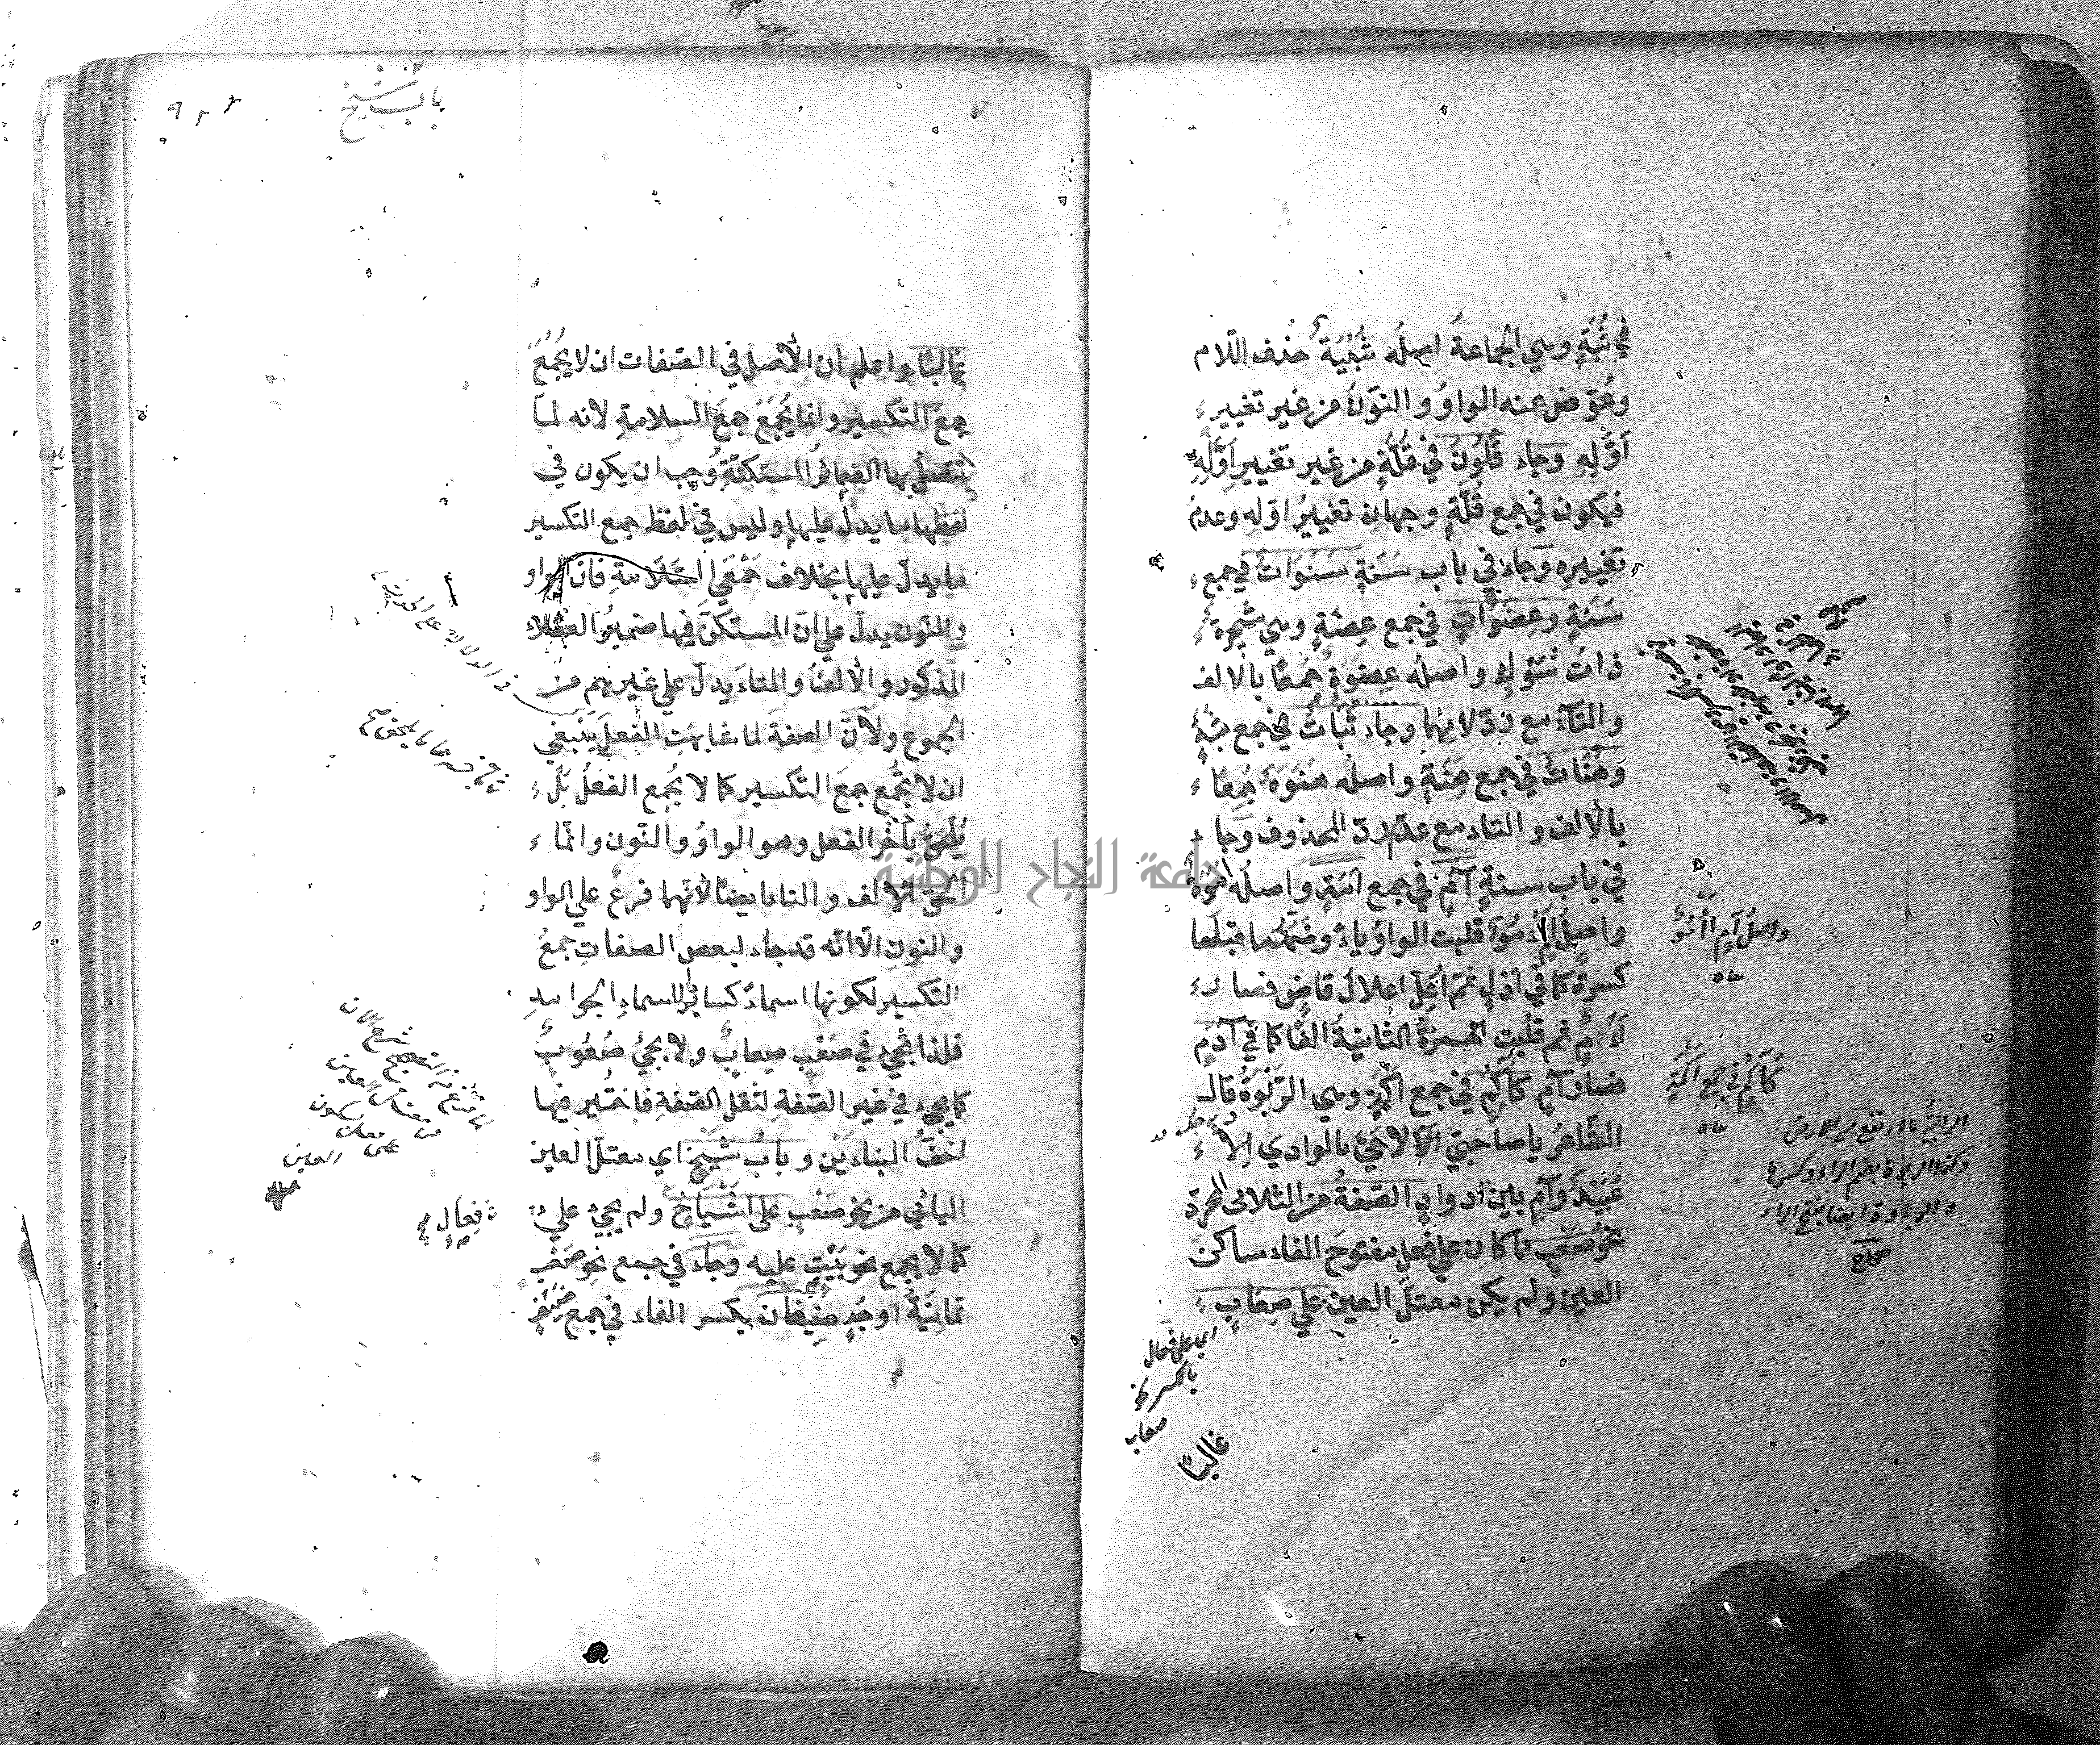 في ثُبَةٍ وهي الجماعةُ اصلُه ثُبْيَةٌ حذف اللام
وعُوّض عنه الواوُ والنّونُ من غير تغيير
اَوَّلِهِ وجاء قُلُونَ في قُلَّةٍ من غير تغييرِ اَوَّلِهِ
فيكون في جمع قُلَّةٍ وجهانِ تغييرُ اوّلِهِ وعدمُ
تغييرِهِ وَجاءَ في باب سَنَةٍ سَنَوَاتٌ في جمع
سَنَةٍ وعِضَوَاتٍ في جمع عِضَةٍ وهي شجرةٌ
ذاتُ شَوْكٍ واصله عِضَوَةٌ جُمعَا بالالف
والتّاء مع رَدّ لامِهما وجاء ثُبَاتٌ في جمع ثُبَةٍ
وَهَنَاتٌ في جمع هَنَةٍ واصلُه هَنَوَة جُمِعَا
بالالف والتاء مع عدم ردّ المحذوف وَجاء
في باب سنةٍ آمٍ في جمع اَمَةٍ واصلُه اَمَوَةٌ
واصل آمٍ أَأْمُوٌ قلبت الواوُ ياءً وضمّةُ ما قبلها
كسرةً كما في اَدْلٍ ثمّ اُعِلّ اعلالَ قاضٍ فصار
أَأْمٍ ثم قُلبت الهمزةُ الثانيةُ الفًا كما في آدَمَ
فصار آمٍ كآكُمٍ في جمع اَكَمَةٍ وهي الرَّبْوَةُ قال
الشّاعرُ يا صاحبَيَّ اَلاَ لاَ حَيَّ بالوادي اِلاّ
عَبِيْدٌ وآمٍ بين اَدوادٍ الصّفةُ من الثلاثى المجرّد
نحوُ صَعْبٍ مما كان على فعلٍ مفتوحَ الفاء ساكن
العين ولم يكن معتلَّ العين على صِعَابٍ
واصلُ آمٍ أَأْمُوٌ
كَآكُمٍ في جمع اَكَمَةٍ
الرابيةُ ما ارتفع من الارض
وكذا الربوة بضم الراء وكسرها
والرباوة ايضا بفتح الراء
صحاح
اى على فعال
بالكسر نحو
صعاب
غالبًا
باب شيخ
غالبًا واعلم ان الأصل في الصّفات ان لا يُجْمَعَ
جمعَ التكسير وانما يُجْمَعَ جمعَ السلامةِ لانه لمّا
يتّصلُ بها الضمائرُ المستكنّةِ وُجب ان يكون في
لفظها ما يدلّ عليها وليس في لفظ جمع التكسير
ما يدلّ عليها بخلاف جَمْعَيِ السَّلاَمةِ فانّ الواو
والنون يدلّ على انّ المستكنَّ فيها ضميرُ العقلاء
المذكور والألفَ والتاءَ يدلّ على غيرهم من
الجموع ولأنّ الصفةَ لما شابهتِ الفعلَ يَنْبغي
ان لا يُجمع جمعَ التكسير كما لا يُجمع الفعلُ بَلْ
يُلْحَقُ بآخر الفعل وهو الواوُ والنّون وانّما
اُلحق الألف والتاء ايضًا لأنّهما فرعٌ على الواو
والنونِ الّا انّه قد جاء لبعض الصفاتِ جمعُ
التكسير لكونها اسماءً كسائر الاسماءِ الجوامدِ
فلذا يجيء في صَعْبٍ صِعَابٌ ولا يجيْ صُعُوبٌ
كما يجيء في غير الصّفةِ لثقل الصّفةِ فاختير فيها
اخفُّ البناءَيْن وبابُ شَيْخٍ اى معتلُّ العين
اليائي من نحو صَعْبٍ على اَشْيَاخٍ ولم يجيْ على
فِعَالٍ صح
كما لا يجمع نحو بَيْتٍ عليه وجاءَ في جمع نحو صَعْبٍ
ثمانِيَةُ اوجُهٍ ضِيْفَان بكسر الفاء في جمع ضَيْفٍ